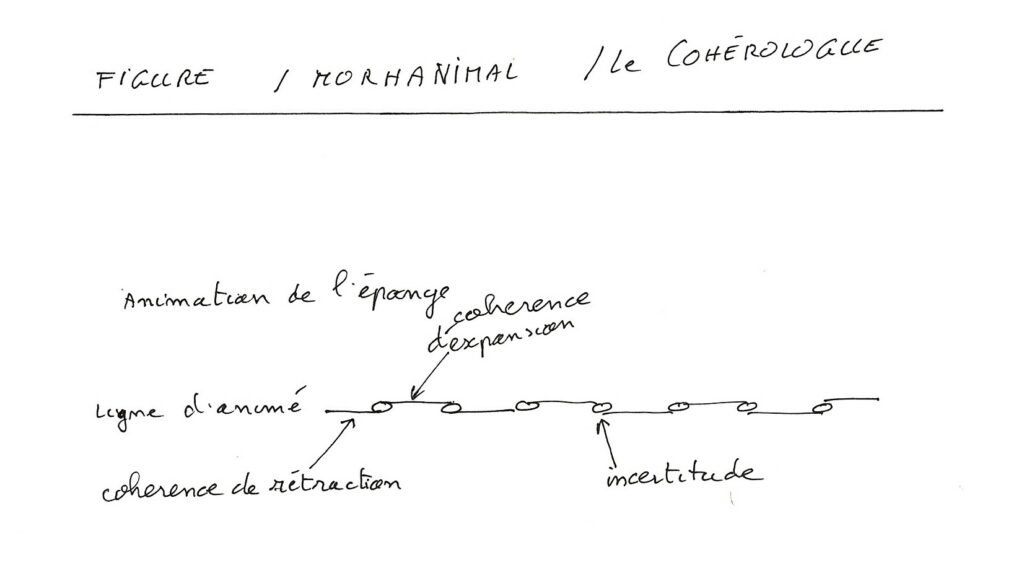 FIGURE / MORHANIMAL / Le COHÉROLOGUE
Animation de l'éponge
coherence
d'expansion
Ligne d'animé
coherence de rétraction
incertitude